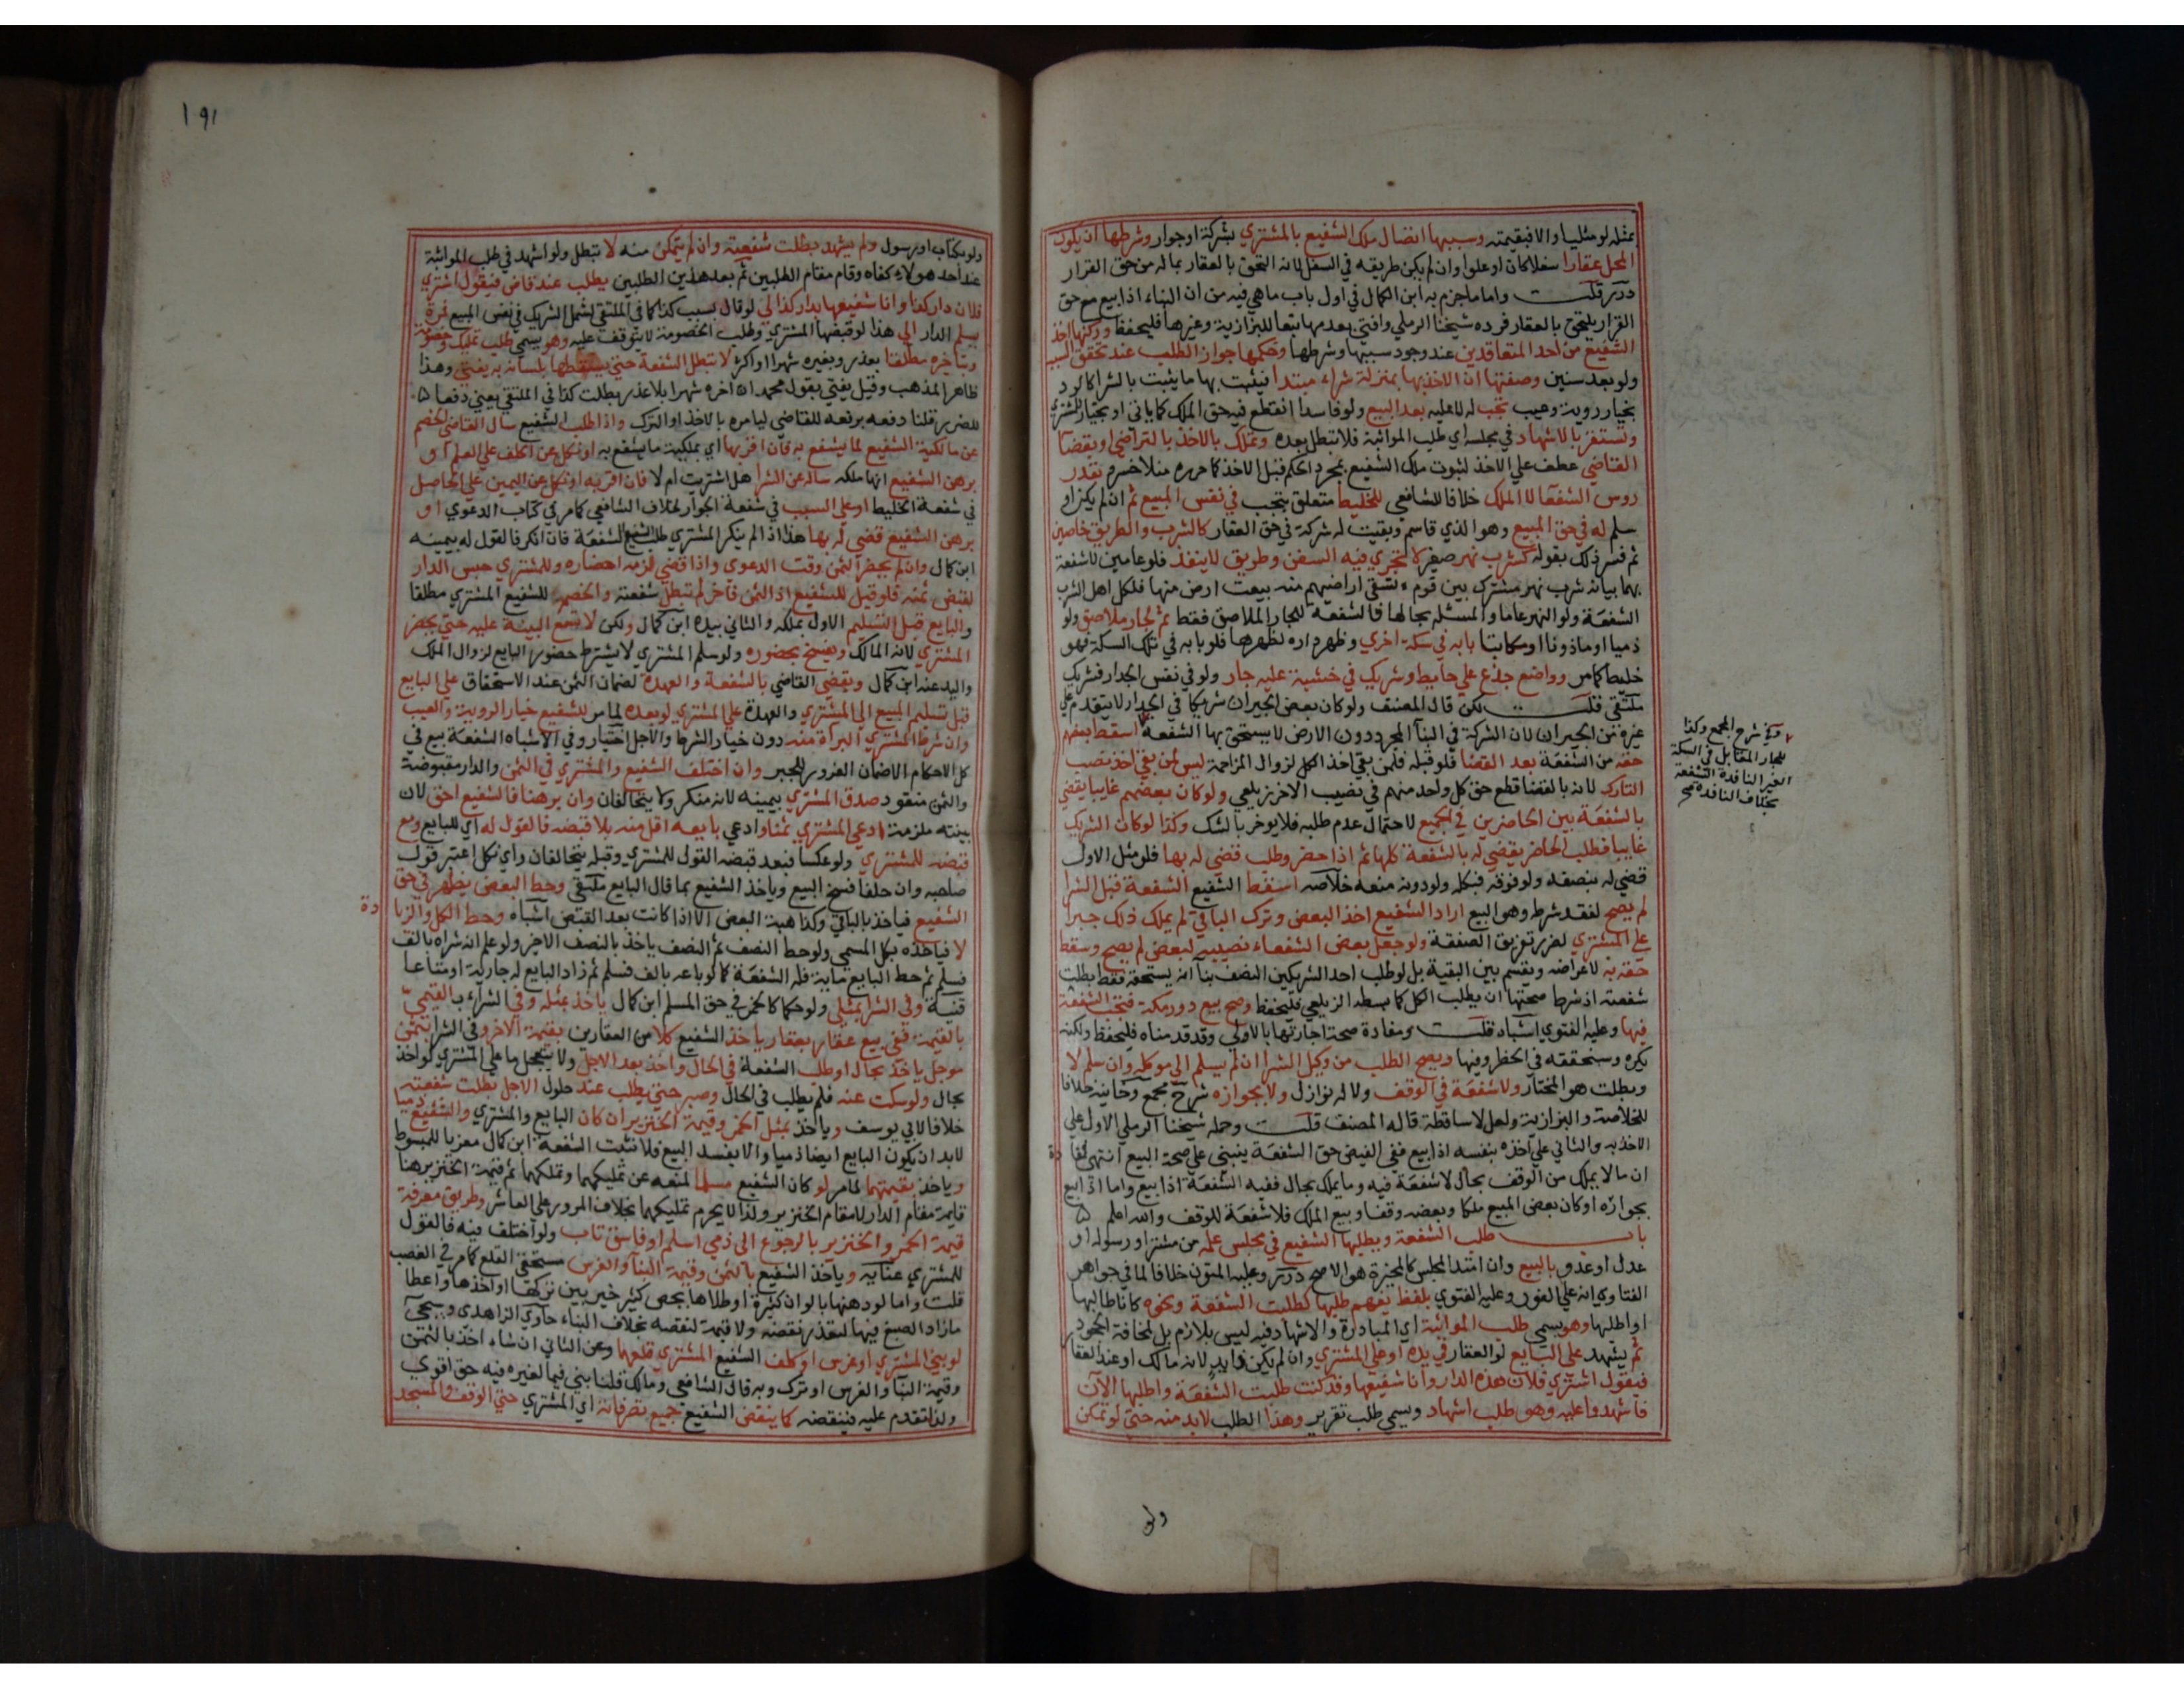 بمثله لو مثليا والا فبقيمته وسببها اتصال ملك الشفيع بالمشتري بشركة او جوار وشرطها ان يكون
المحل عقارا سفلا كان او علوا وان لم يكن طريقه في السفل لانه التحق بالعقار بماله من حق القرار
درر قلت واما ما جزم به ابن الكمال في اول باب ما هي فيه من ان البناء اذا بيع مع حق
القرار يلتحق بالعقار فرده شيخنا الرملي وافتي بعدمها تبعا للبزازية وغيرها فليحفظ وركنها اخذ
الشفيع من احد المتعاقدين عند وجود سببها وشرطها وحكمها جواز الطلب عند تحقق السبب
ولو بعد سنين وصفتها ان الاخذ بها بمنزلة شراء مبتدا فيثبت بها ما يثبت بالشرا كالرد
بخيار روية وعيب تجب له لا عليه بعد البيع ولو فاسدا انقطع فيه حق الملك كما ياتي او بخيار للمشتري
وتستقر بالاشهاد في مجلسه اي طلب المواثبة فلا تبطل بعده وتملك بالاخذ بالتراضي او بقضا
القاضي عطف علي الاخذ لثبوت ملك الشفيع بمجرد الحكم قبل الاخذ كما حرره منلا خسرو بقدر
روس الشفعا لا الملك خلافا للشافعي للخليط متعلق بتجب في نفس المبيع ثم ان لم يكن او
سلم له في حق المبيع وهو الذي قاسم وبقيت له شركة في حق العقار كالشرب والطريق خاصين
ثم فسر ذلك بقوله كشرب نهر صغير لا تجري فيه السفن وطريق لا ينفذ فلو عامين لا شفعة
بهما بيانه شرب نهر مشترك بين قوم تسقي اراضيهم منه بيعت ارض منها فلكل اهل الشرب
الشفعة ولو النهر عاما والمسئلة بحالها فالشفعة للجار الملاصق فقط ثم لجار ملاصق ولو
ذميا او ماذونا او مكاتبا بابه في سكة اخري وظهر داره لظهرها فلو بابه في تلك السكة فهو
خليط كما مر وواضع جذع علي حايط وشريك في خشبة عليه جار ولو في نفس الجدار فشريك
ملتقي قلت لكن قال المصنف ولو كان بعض الجيران شريكا في الجدار لا يتقدم علي
غيره من الجيران لان الشركة في البنا المجرد دون الارض لا يستحق بها الشفعة اسقط بعضهم
حقه من الشفعة بعد القضا فلو قبله فلمن بقي اخذ الكل لزوال المزاحمة ليس لمن بقي اخذ نصيب
التارك لانه بالقضا قطع حق كل واحد منهم في نصيب الاخر زيلعي ولو كان بعضهم غايبا يقضي
بالشفعة بين الحاضرين في الجميع لاحتمال عدم طلبه فلا يوخر بالشك وكذا لو كان الشريك
غايبا فطلب الحاضر يقضي له بالشفعة كلها ثم اذا حضر وطلب قضي له بها فلو مثل الاول
قضي له بنصفه ولو فوقه فبكله ولو دونه منعه خلاصه اسقط الشفيع الشفعة قبل الشرا
لم يصح لفقد شرطه وهو البيع اراد الشفيع اخذ البعض وترك الباقي لم يملك ذلك جبرا
علي المشتري لضرر تفريق الصفقة ولو جعل بعض الشفعاء نصيبه لبعض لم يصح وسقط
حقه به لاعراضه ويقسم بين البقية بل لو طلب احد الشريكين النصف بنا انه يستحقه فقط بطلت
شفعته اذ شرط صحتها ان يطلب الكل كما بسطه الزيلعي فليحفظ وصح بيع دور مكة فتجب الشفعة
فيها وعليه الفتوي اشباه قلت ومفاده صحة اجارتها بالاولي وقد قدمناه فليحفظ ولكنه
يكره وسنحققه في الحظر وفيها ويصح الطلب من وكيل الشرا ان لم يسلم الي موكله وان سلم لا
وبطلت هو المختار ولا شفعة في الوقف ولا له نوازل ولا بجواره شرح مجمع وخانية خلافا
للخلاصة والبزازية ولعل لا ساقطة قاله المصنف قلت وحمله شيخنا الرملي الاول علي
الاخذ به والثاني علي اخذه بنفسه اذا بيع ففي الفيض حق الشفعة ينبني علي صحة البيع انتهي
ان ما لا يملك من الوقف بحال لا شفعة فيه وما يملك بحال ففيه الشفعة اذا بيع واما اذا بيع
بجواره او كان بعض المبيع ملكا وبعضه وقفا وبيع الملك فلا شفعة للوقف والله اعلم
باب طلب الشفعة ويطلبها الشفيع في مجلس علمه من مشتر او رسوله او
عدل او عدد بالبيع وان امتد المجلس كالمخيرة هو الاصح درر وعليه المتون خلافا لما في جواهر
الفتاوي انه علي الفور وعليه الفتوي بلفظ يفهم طلبها كطلبت الشفعة ونحوه كانا طالبها
او اطلبها وهو يسمي طلب المواثبة اي المبادرة والاشهاد فيه ليس بلازم بل لمخافة الجحود
ثم يشهد علي البايع لو العقار في يده او علي المشتري وان لم يكن ذا يد لانه مالك او عند العقار
فيقول اشتري فلان هذه الدار وانا شفيعها وقد كنت طلبت الشفعة واطلبها الان
فاشهدوا عليه وهو طلب اشهاد ويسمي طلب تقرير وهذا الطلب لابد منه حتي لو تمكن
ولو
وفي شرح المجمع وكذا
للجار المقابل في السكة
الغير النافذة الشفعة
بخلاف النافذة صح
١٩١
ولو بكتاب او رسول ولم يشهد بطلت شفعته وان لم يتمكن منه لا تبطل ولو اشهد في طلب المواثبة
عند احد هولاء كفاه وقام مقام الطلبين ثم بعد هذين الطلبين يطلب عند قاض فيقول اشتري
فلان دار كذا وانا شفيعها بدار كذا لي لو قال بسبب كذا كما في الملتقي لشمل الشريك في نفس المبيع فمره
يسلم الدار الي هذا لو قبضها المشتري وطلب الخصومة لا يتوقف عليه وهو يسمي طلب تمليك وخصومة
وبتاخيره مطلقا بعذر وبغيره شهرا او اكثر لا تبطل الشفعة حتي يسقطها بلسانه به يفتي وهذا
ظاهر المذهب وقيل يفتي بقول محمد ان اخره شهرا بلا عذر بطلت كذا في الملتقي يعني دفعا
للضرر قلنا دفعه برفعه للقاضي ليامره بالاخذ او الترك واذا طلب الشفيع سال القاضي الخصم
عن مالكية الشفيع لما يشفع به فان اقر بها اي بملكية ما يشفع به او نكل عن الحلف علي العلم او
برهن الشفيع انها ملكه ساله عن الشرا هل اشتريت ام لا فان اقر به او نكل عن اليمين علي الحاصل
في شفعة الخليط او علي السبب في شفعة الجوار لخلاف الشافعي كما مر في كتاب الدعوي او
برهن الشفيع قضي له بها هذا اذا لم ينكر المشتري طلب الشفيع الشفعة فان انكر فالقول له بيمينه
ابن كمال وان لم يحضر الثمن وقت الدعوي واذا قضي لزمه احضاره وللمشتري حبس الدار
لقبض ثمنه فلو قيل للشفيع اد الثمن فاخر لم تبطل شفعته والخصم للشفيع المشتري مطلقا
والبايع قبل التسليم الاول بملكه والثاني بيده ابن كمال ولكن لا تسمع البينة عليه حتي يحضر
المشتري لانه المالك ويفسخ بحضوره ولو سلم المشتري لا يشترط حضور البايع لزوال الملك
واليد عنه ابن كمال ويقضي القاضي بالشفعة والعهدة لضمان الثمن عند الاستحقاق علي البايع
قبل تسليم المبيع الي المشتري والعهدة علي المشتري لو بعده لما مر للشفيع خيار الروية والعيب
وان شرط المشتري البراة منه دون خيار الشرط والاجل اختيار وفي الاشباه الشفعة بيع في
كل الاحكام الا ضمان الغرور للجبر وان اختلف الشفيع والمشتري في الثمن والدار مقبوضة
والثمن منقود صدق المشتري بيمينه لانه منكر ولا يتحالفان وان برهنا فالشفيع احق لان
بينته ملزمة ادعي المشتري ثمنا وادعي بايعه اقل منه بلا قبضه فالقول له اي للبايع ومع
قبضه للمشتري ولو عكسا فبعد قبضه القول للمشتري وقبله يتحالفان واي نكل اعتبر قول
صاحبه وان حلفا فسخ البيع وياخذ الشفيع بما قال البايع ملتقي وحط البعض يظهر في حق
الشفيع فياخذ بالباقي وكذا هبة البعض الا اذا كانت بعد القبض اشباه وحط الكل والزيا
دة
لا فياخذه بكل المسمي ولو حط النصف ثم النصف ياخذ بالنصف الاخير ولو علم انه شراه بالف
فسلم ثم حط البايع ماية فله الشفعة كما لو باعه بالف فسلم ثم زاد البايع له جارية او متاعا
قنية وفي الشرا بمثلي ولو حكما كالخمر في حق المسلم ابن كمال ياخذ بمثله وفي الشراء بالقيمي
بالقيمة ففي بيع عقار بعقار ياخذ الشفيع كلا من العقارين بقيمة الاخر وفي الشرا بثمن
موجل ياخذ بحال او طلب الشفعة في الحال واخذ بعد الاجل ولا يتعجل ما علي المشتري لو اخذ
بحال ولو سكت عنه فلم يطلب في الحال وصبر حتي يطلب عند حلول الاجل بطلت شفعته
خلافا لابي يوسف وياخذ بمثل الخمر وقيمة الخنزير ان كان البايع والمشتري والشفيع ذميا
لابد ان يكون البايع ايضا ذميا والا يفسد البيع فلا تثبت الشفعة ابن كمال معزيا للمبسوط
وياخذ بقيمتهما لما مر لو كان الشفيع مسلما لمنعه عن تمليكهما وتملكهما ثم قيمة الخنزير هنا
قايمة مقام الدار لا مقام الخنزير ولذا لا يحرم تمليكهما بخلاف المرور علي العاشر وطريق معرفة
قيمة الخمر والخنزير بالرجوع الي ذمي اسلم او فاسق تاب ولو اختلف فيه فالقول
للمشتري عناية وياخذ الشفيع بالثمن وقيمة البنا والغرس مستحقي القلع كما مر في الغصب
قلت واما لو دهنها بالوان كثيرة او طلاها بجص كثير خير بين تركها او اخذها واعطا
ما زاد الصبغ فيها لتعذر نقضه ولا قيمة لنقضه بخلاف البناء حاوي الزاهدي وسيجي
لو بني المشتري او غرس او كلف الشفيع المشتري قلعهما وعن الثاني ان شاء اخذ بالثمن
وقيمة البنا والغرس او ترك وبه قال الشافعي ومالك قلنا بني فيما لغيره فيه حق اقوي
ولذا تقدم عليه فينقضه كما ينقض الشفيع جميع تصرفاته اي المشتري حتي الوقف والمسجد